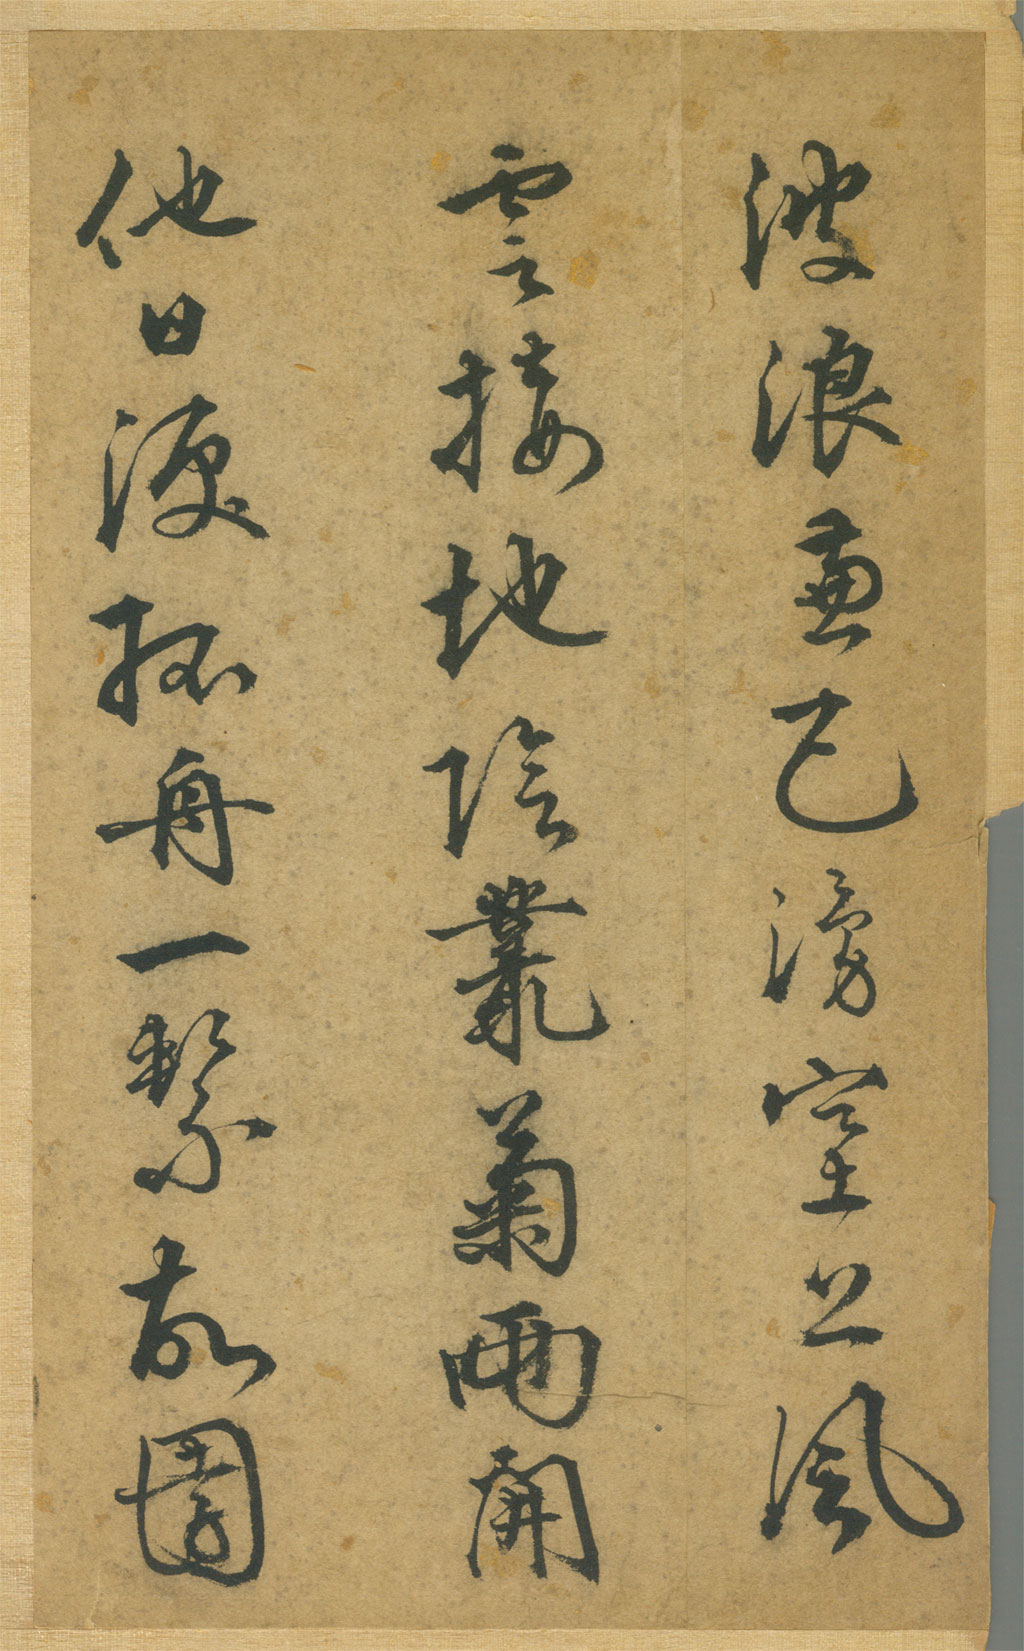 波浪兼天湧塞上風
雲接地陰叢菊兩開
他日淚孤舟一繫故園